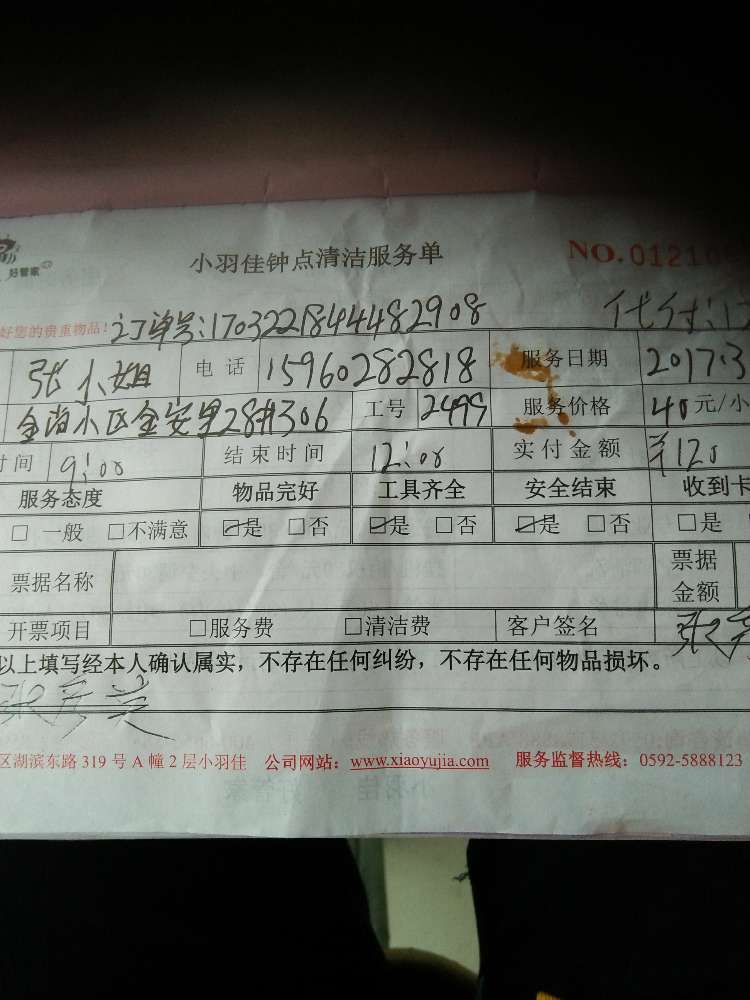 好管家
小羽佳钟点清洁服务单 NO.01210
好您的贵重物品! 订单号:1703221844482908 代付:1
张小姐 电话 15960282818 服务日期 2017.3
金尚小区金安里28#306 工号 2499 服务价格 40元/小
时间 9:00 结束时间 12:00 实付金额 ¥120
服务态度 物品完好 工具齐全 安全结束 收到卡
□一般 □不满意 ☑是 □否 ☑是 □否 ☑是 □否 □是
票据名称 票据金额
开票项目 □服务费 □清洁费 客户签名 张
以上填写经本人确认属实，不存在任何纠纷，不存在任何物品损坏。
区湖滨东路 319 号 A 幢 2 层小羽佳 公司网站：www.xiaoyujia.com 服务监督热线：0592-5888123